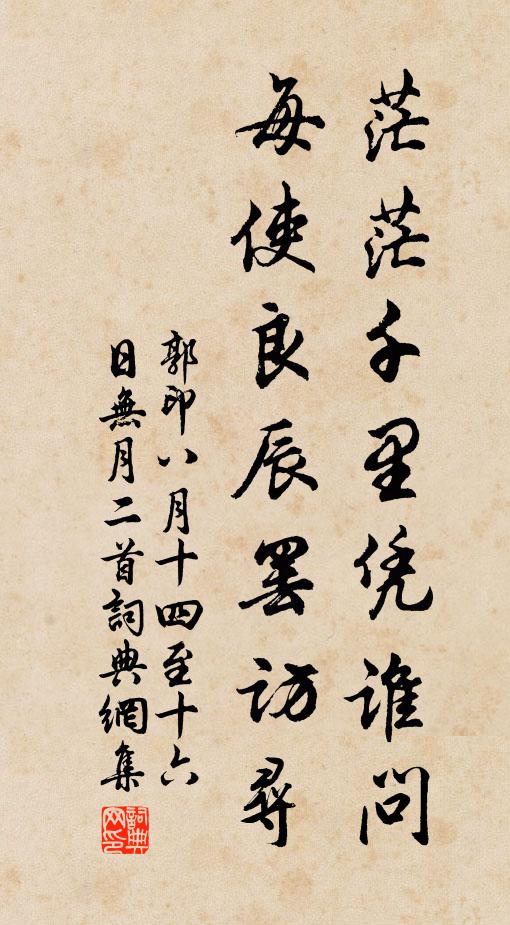 茫茫千里凭谁问
每使良辰罢访寻
郭印八月十四至十六
日無月二首詞典網集
詞典网印